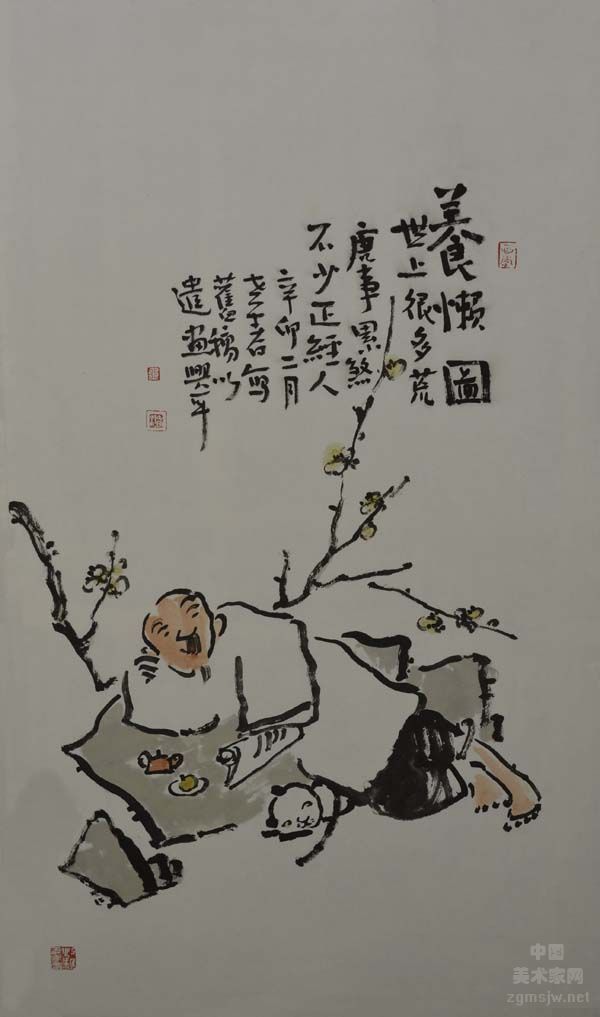 養懶圖
世上很多荒
唐事累煞
不少正經人
辛卯二月
寫
舊稿以
遣畫興
中国
美术家网
zgmsjw.net